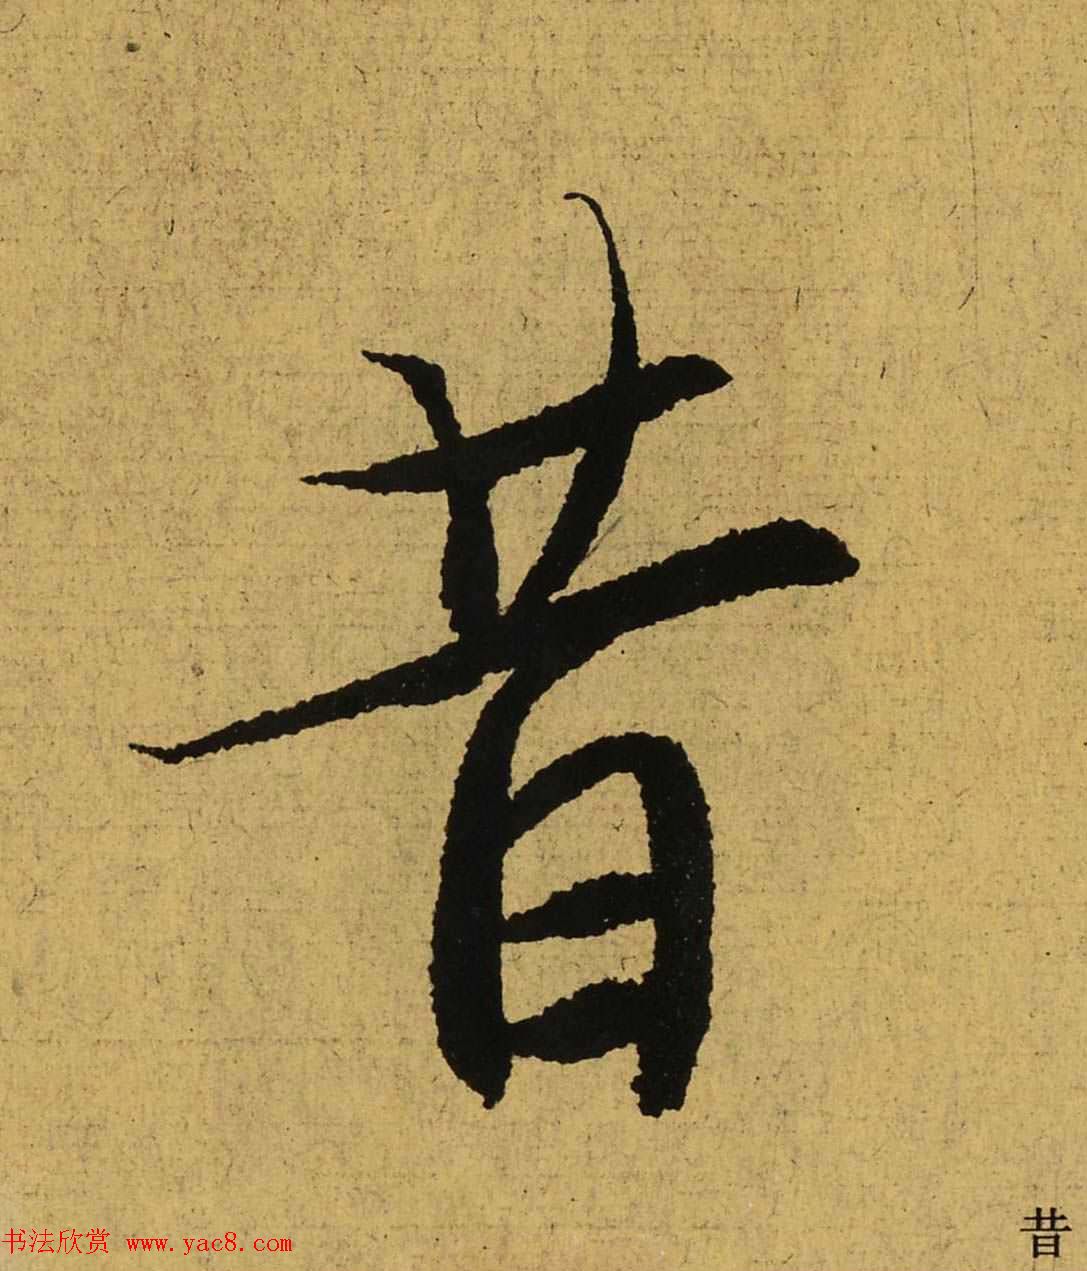 昔
书法欣赏 www.yac8.com
昔